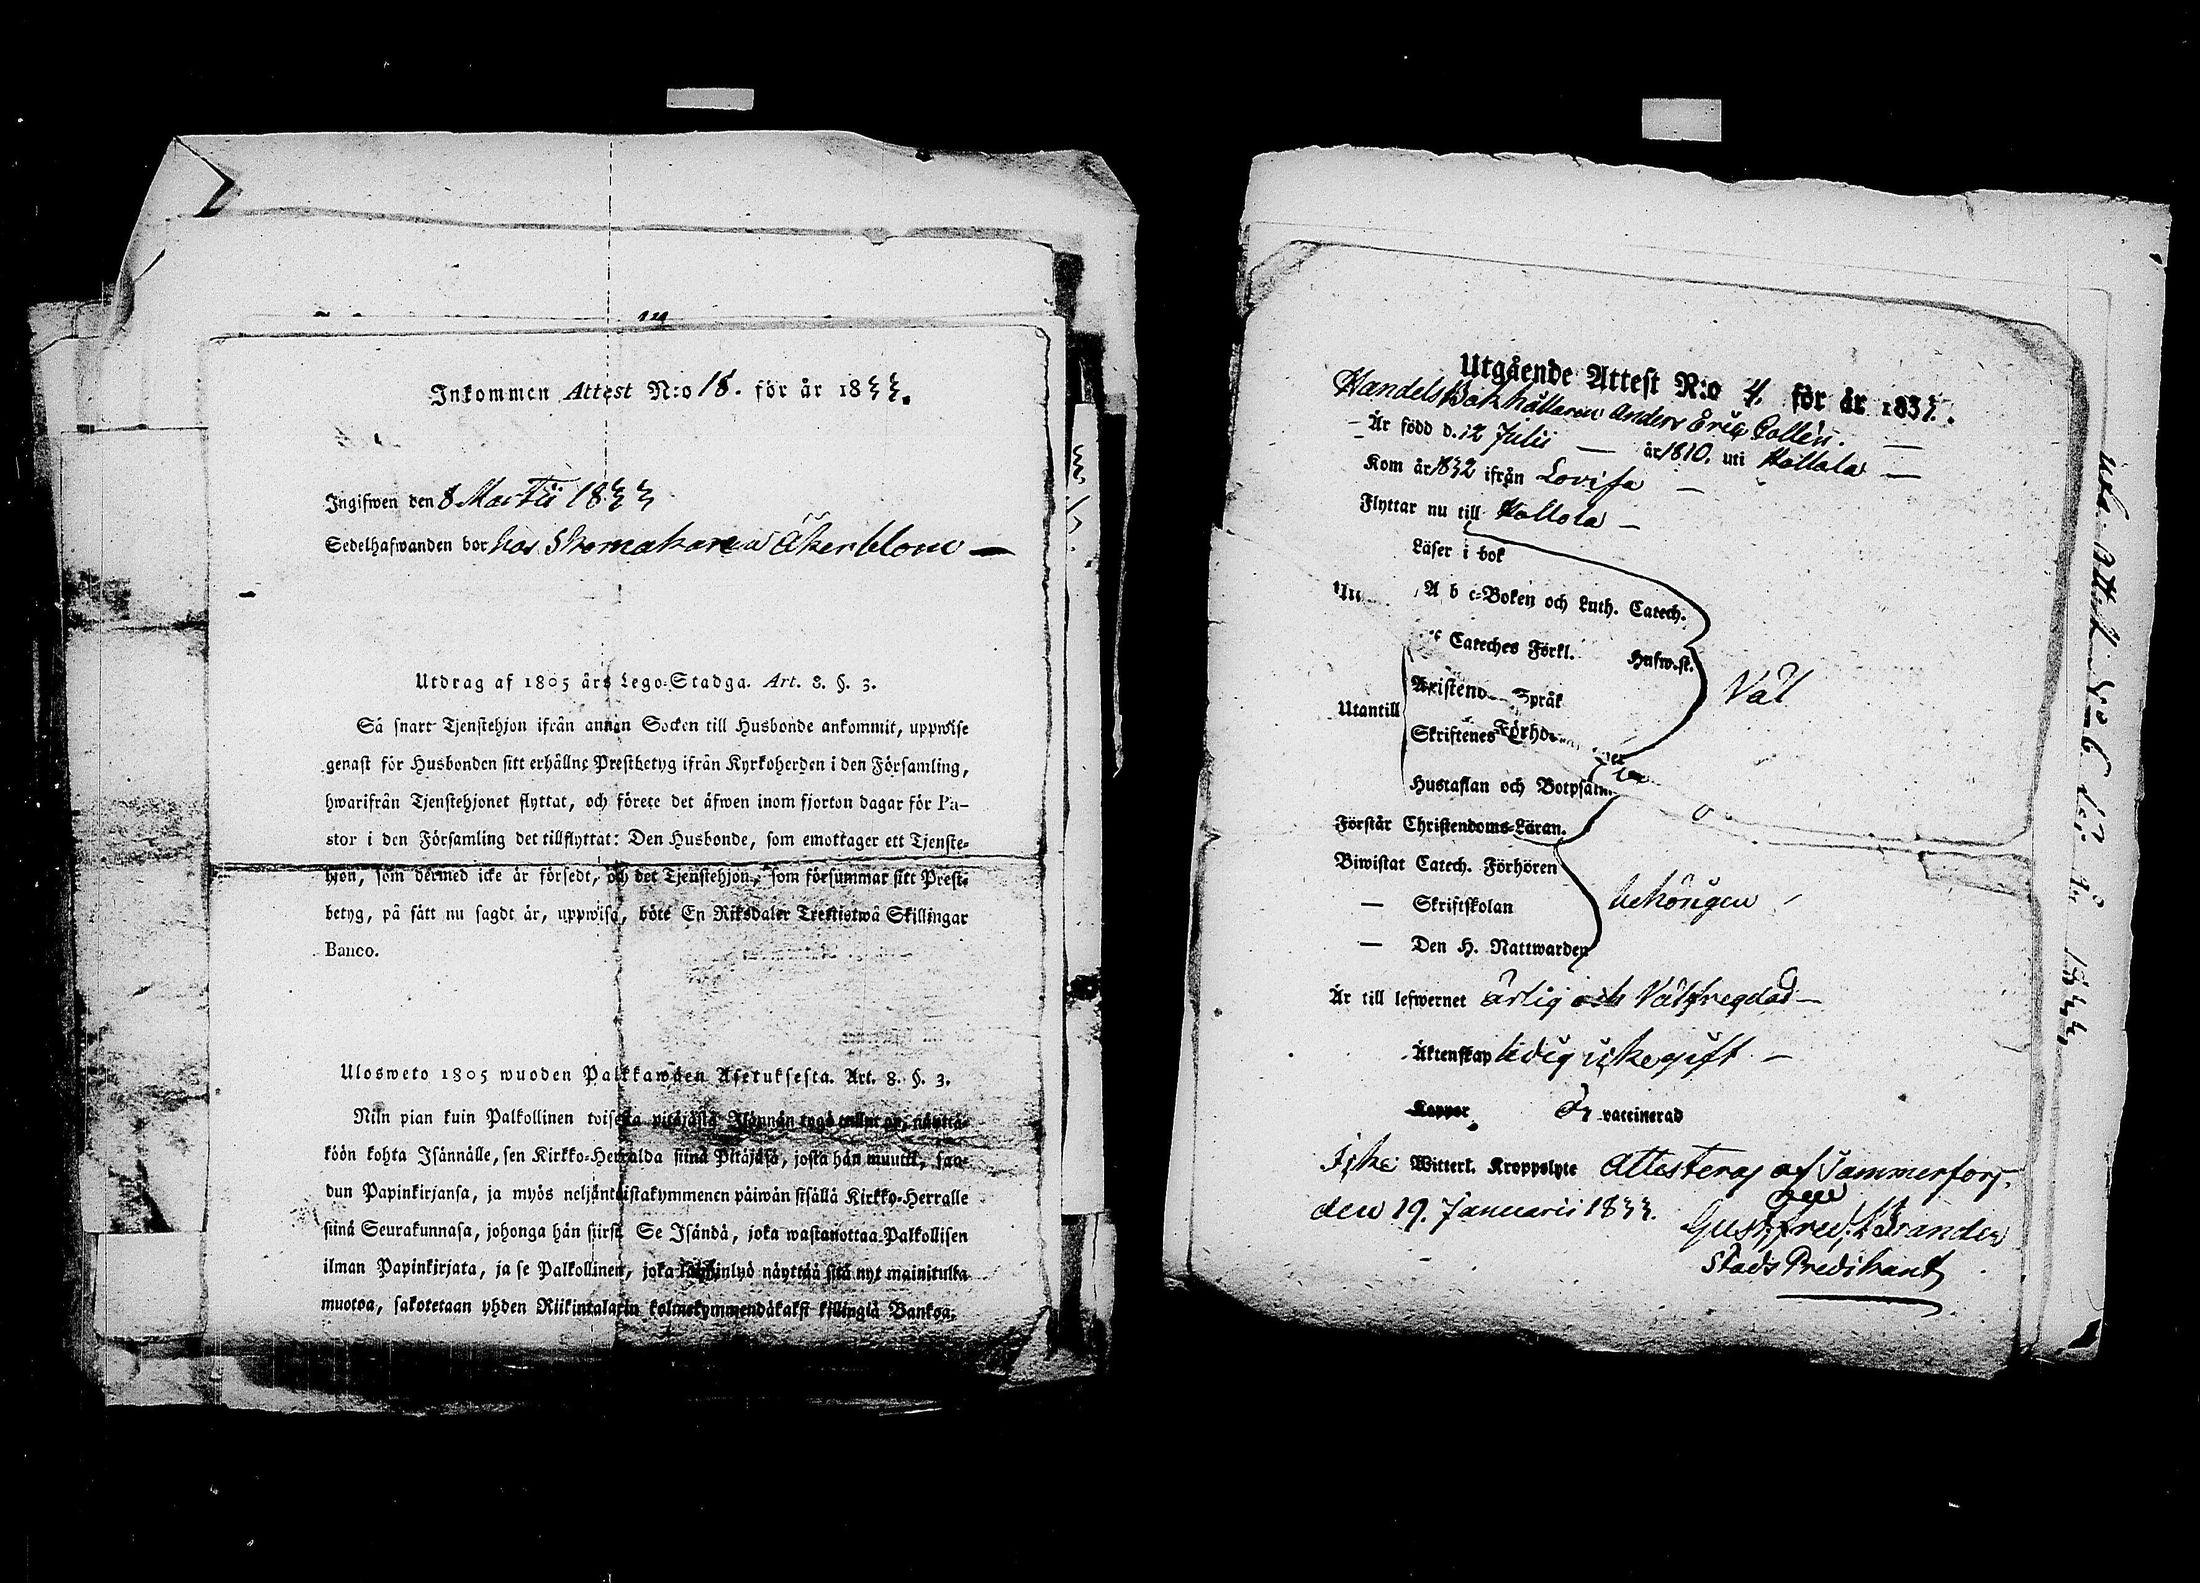 Inkommen Attest N:o 18. för år 1833.
Ingifwen den 8 Martii 1833
Sedelhafwanden bor hos Skomakaren Åkerblom —
Utdrag af 1805 års Lego-Stadga. Art. 8. §. 3.
Så snart Tjenstehjon ifrån annan Socken till Husbonde ankommit, uppwise
genast för Husbonden sitt erhållne Prestbetyg ifrån Kyrkoherden i den Församling,
hwarifrån Tjenstehjonet flyttat, och förete det äfwen inom fjorton dagar för Pa-
stor i den Församling det tillflyttat: Den Husbonde, som emottager ett Tjenste-
hjon, som dermed icke är försedt, och det Tjenstehjon, som försummar sitt Prest-
betyg, på sätt nu sagdt är, uppwisa, böte En Riksdaler Trettiotwå Skillingar
Banco.
Ulosweto 1805 wuoden Palkkawäen Asetuksesta. Art. 8. §. 3.
Niin pian kuin Palkollinen toisesta pitäjästä Isännän tygö tullut on, näyttä-
köön kohta Isännälle, sen Kirkko-Herralda siinä Pitäjäsä, josta hän muutti, saa-
dun Papinkirjansa, ja myös neljäntoistakymmenen päiwän sisällä Kirkko-Herralle
siinä Seurakunnasa, johonga hän siirsi. Se Isändä, joka wastanottaa Palkollisen
ilman Papinkirjata, ja se Palkollinen, joka laiminlyö näyttää sitä nyt mainitulla
muotoa, sakotetaan yhden Riikintalarin kolmekymmendäkaksi killingiä Bankoa.
Utgående Attest N:o 4. för år 1833.
Handels Bokhållaren Anders Eric Collén.
Är född d. 12 Julii — år 1810. uti Hollola —
Kom år 1832 ifrån Lovisa —
Flyttar nu till Hollola —
Läser i bok
A b c-Boken och Luth. Catech.
Cateches Förkl. Husw.st.
Utantill
Språk
Skriftenes
Hustaflan och Botpsalm
Väl
Förstår Christendoms-Läran.
Biwistat Catech. Förhören
— Skriftskolan behörigen
— Den H. Nattwarden
Är till lefwernet ärlig och Välfregdad —
Äktenskap ledig icke gift —
Koppor Är vaccinerad
Icke Witterl. Kroppslyte Attesteras af Tammerfors,
den 19. Januarii 1833.
Gust. Fred. Brander
Stads Predikant